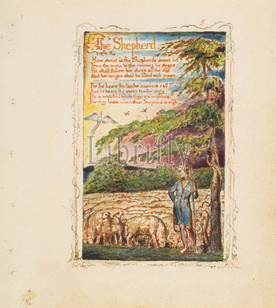 5
The Shepherd.
How sweet is the Shepherds sweet lot,
From the morn to the evening he strays:
He shall follow his sheep all the day
And his tongue shall be filled with praise.
For he hears the lambs innocent call,
And he hears the ewes tender reply,
He is watchful while they are in peace,
For they know when their Shepherd is nigh.